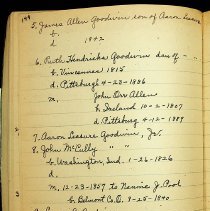 5. James Allen Goodwin son of Aaron Leasure
b. 1842
d.
6. Ruth Hendricks Goodwin dau of
b. Vincennes 1815
d. Pittsburgh 4-23-1886
m. John Orr Allen
b. Ireland 10-2-1807
d. Pittsburg 4-12-1889
7. Aaron Leasure Goodwin, Jr.
8. John McCully " "
b. Washington, Ind. 1-26-1826
d.
m. 12-23-1857 to Nannie J. Pool
b. Belmont Co. O. 9-25-1840